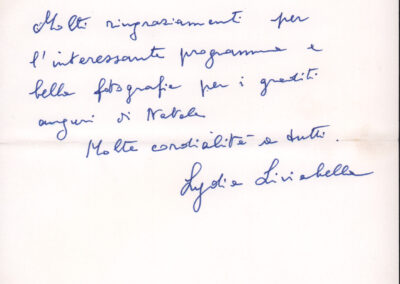 Molti ringraziamenti per
l'interessante programma e
bella fotografia per i graditi
auguri di Natale
Molte cordialità a tutti.
Lydia Liviabella